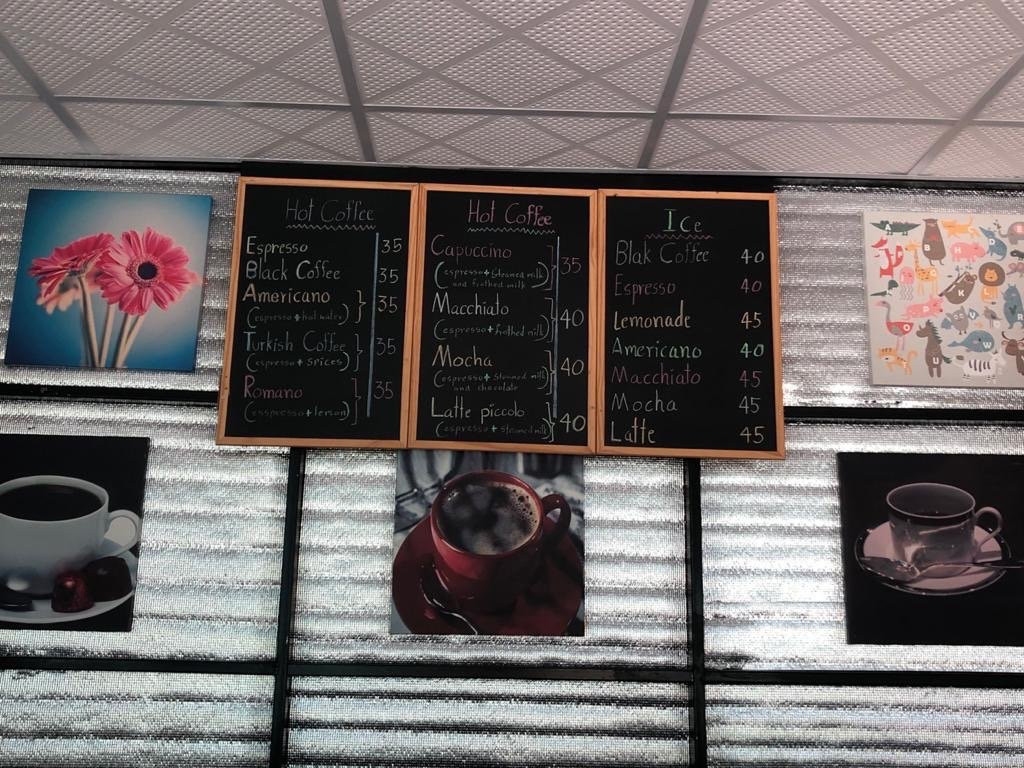 Hot Coffee
Espresso 35
Black Coffee 35
Americano 35
(espresso+hot water)
Turkish Coffee 35
(espresso+spices)
Romano 35
(esspresso+lemon)
Hot Coffee
Capuccino 35
(espresso+steamed milk
and frothed milk)
Macchiato 40
(espresso+frothed milk)
Mocha 40
(espresso+steamed milk
and chocolate)
Latte piccolo 40
(espresso+steamed milk)
Ice
Blak Coffee 40
Espresso 40
Lemonade 45
Americano 40
Macchiato 45
Mocha 45
Latte 45